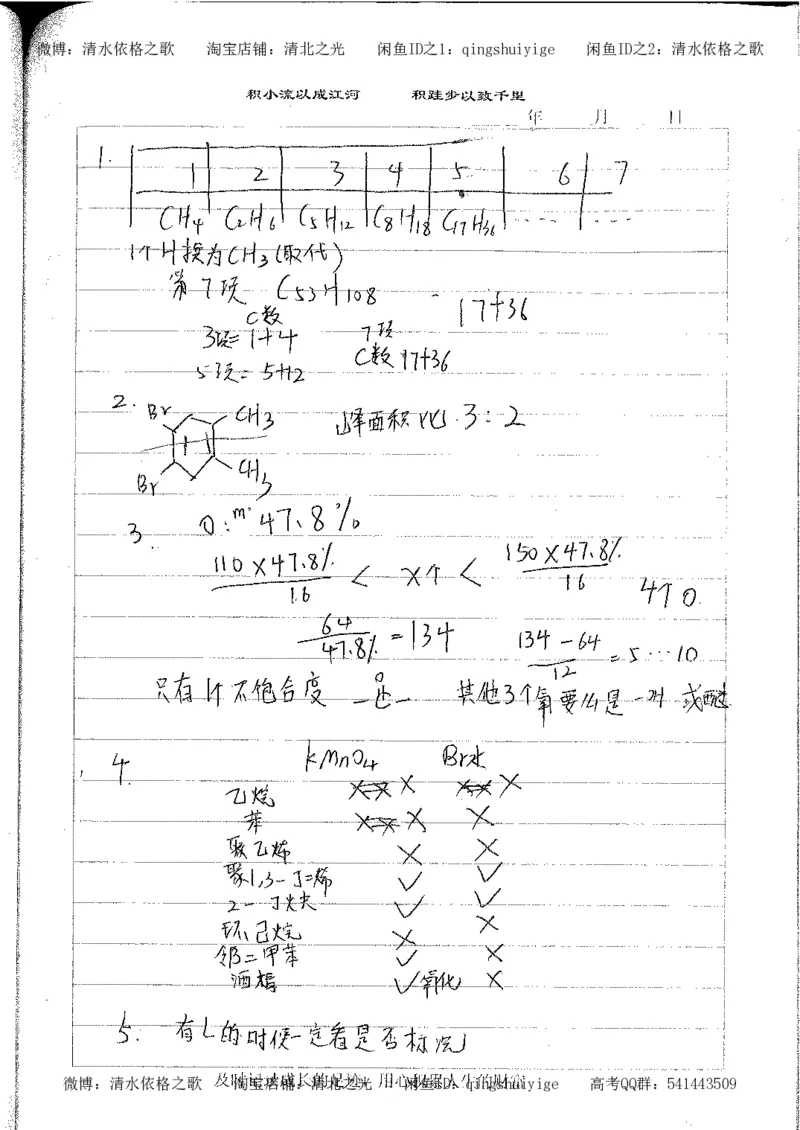 微博：清水依格之歌 淘宝店铺：清北之光 闲鱼ID之1：qingshuiyige 闲鱼ID之2：清水依格之歌
积小流以成江河 积跬步以致千里
年 月 日
1. 1 2 3 4 5 6 7
CH4 C2H6 C5H12 C8H18 C17H36 ---- ----
1个H换为CH3(取代)
第7项 C53H108 17+36
C数
3项=1+4 7项
5项=5+12 C数17+36
2. Br CH3 峰面积比 3:2
Br CH3
3. O: m. 47.8%
110×47.8%/16 < x个 < 150×47.8%/16 4个O
64/47.8% = 134 134-64/12 = 5…10
只有1个不饱合度 -C- 其他3个氧要么是-OH 或醚
O
4. KMnO4 Br水
乙烷 × ×
苯 × ×
聚乙烯 × ×
聚1,3-丁二烯 ✓ ✓
2-丁炔 ✓ ✓
环己烷 × ×
邻二甲苯 ✓ ×
酒精 ✓氧化 ×
5. 有L的时候一定看是否标况
微博：清水依格之歌 淘宝店铺：清北之光 闲鱼ID：qingshuiyige 高考QQ群：541443509